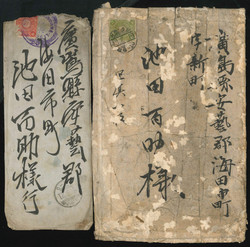 廣島縣安藝郡
海田市町
池田百助様行
廣島縣安藝郡海田市町
字新町
池田百助様